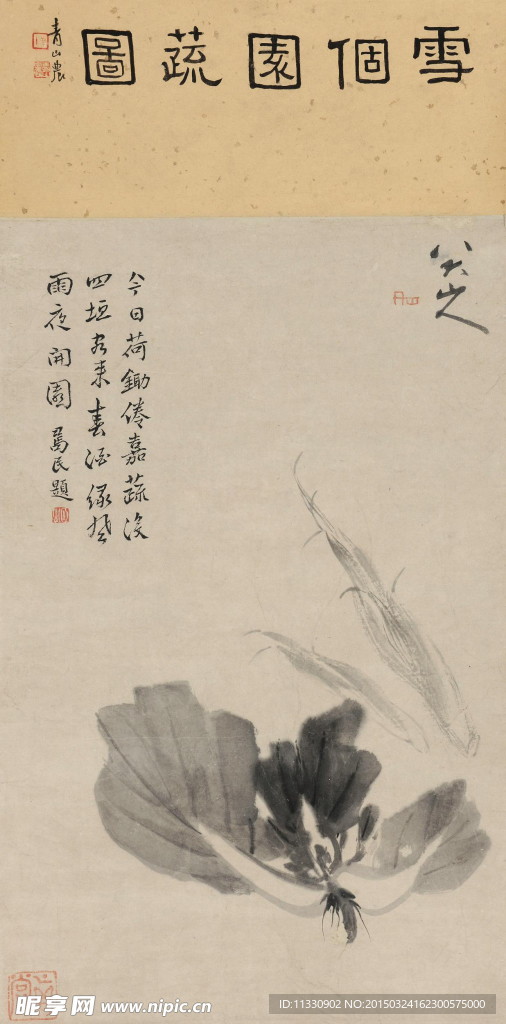 雪個園蔬圖
青山農
八大山人
今日荷鋤倦嘉蔬沒
四垣客來春酒綠
雨夜開園 民題
昵享网 www.nipic.cn
ID:11330902 NO:20150324162300575000